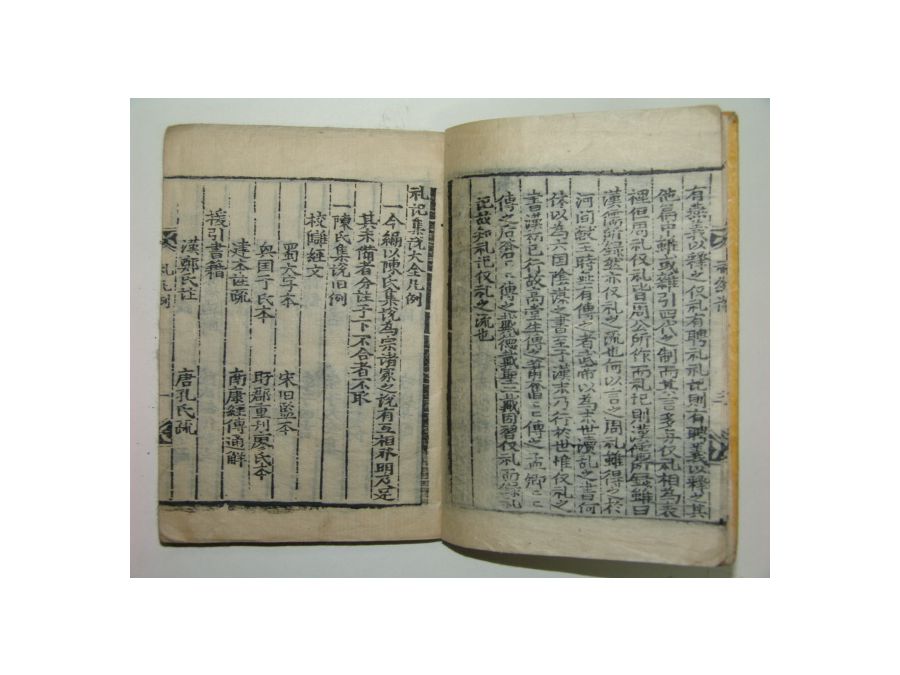 有燕義以釋之仪礼有聘礼礼記則有聘義以釋之其
他篇中雖或雜引四代之制而其言多与仪礼相為表
裡但周礼仪礼皆周公所作而礼記則漢儒所録雖曰
漢儒所録然亦仪礼之流也何以言之周礼雖得之於
河間献王時無有傳之者武帝以為末世瀆乱之書何
休以為六国陰謀之書至于漢末乃行於世惟仪礼之
書漢初已行故高堂生傳之蕭奮奮傳之孟卿卿
傳之后蒼蒼傳之戴德戴聖二戴因習仪礼而録礼
記故知礼記仪礼之流也
礼記集説大全凡例
一今編以陳氏集説為宗諸家之説有互相發明及足
其未備者分註于下不合者不取
一陳氏集説旧例
校讎経文
蜀大字本 宋旧監本
興国于氏本 盱郡重刊廖氏本
建本註疏 南康経傳通解
援引書籍
漢鄭氏註 唐孔氏疏
礼凡例 一